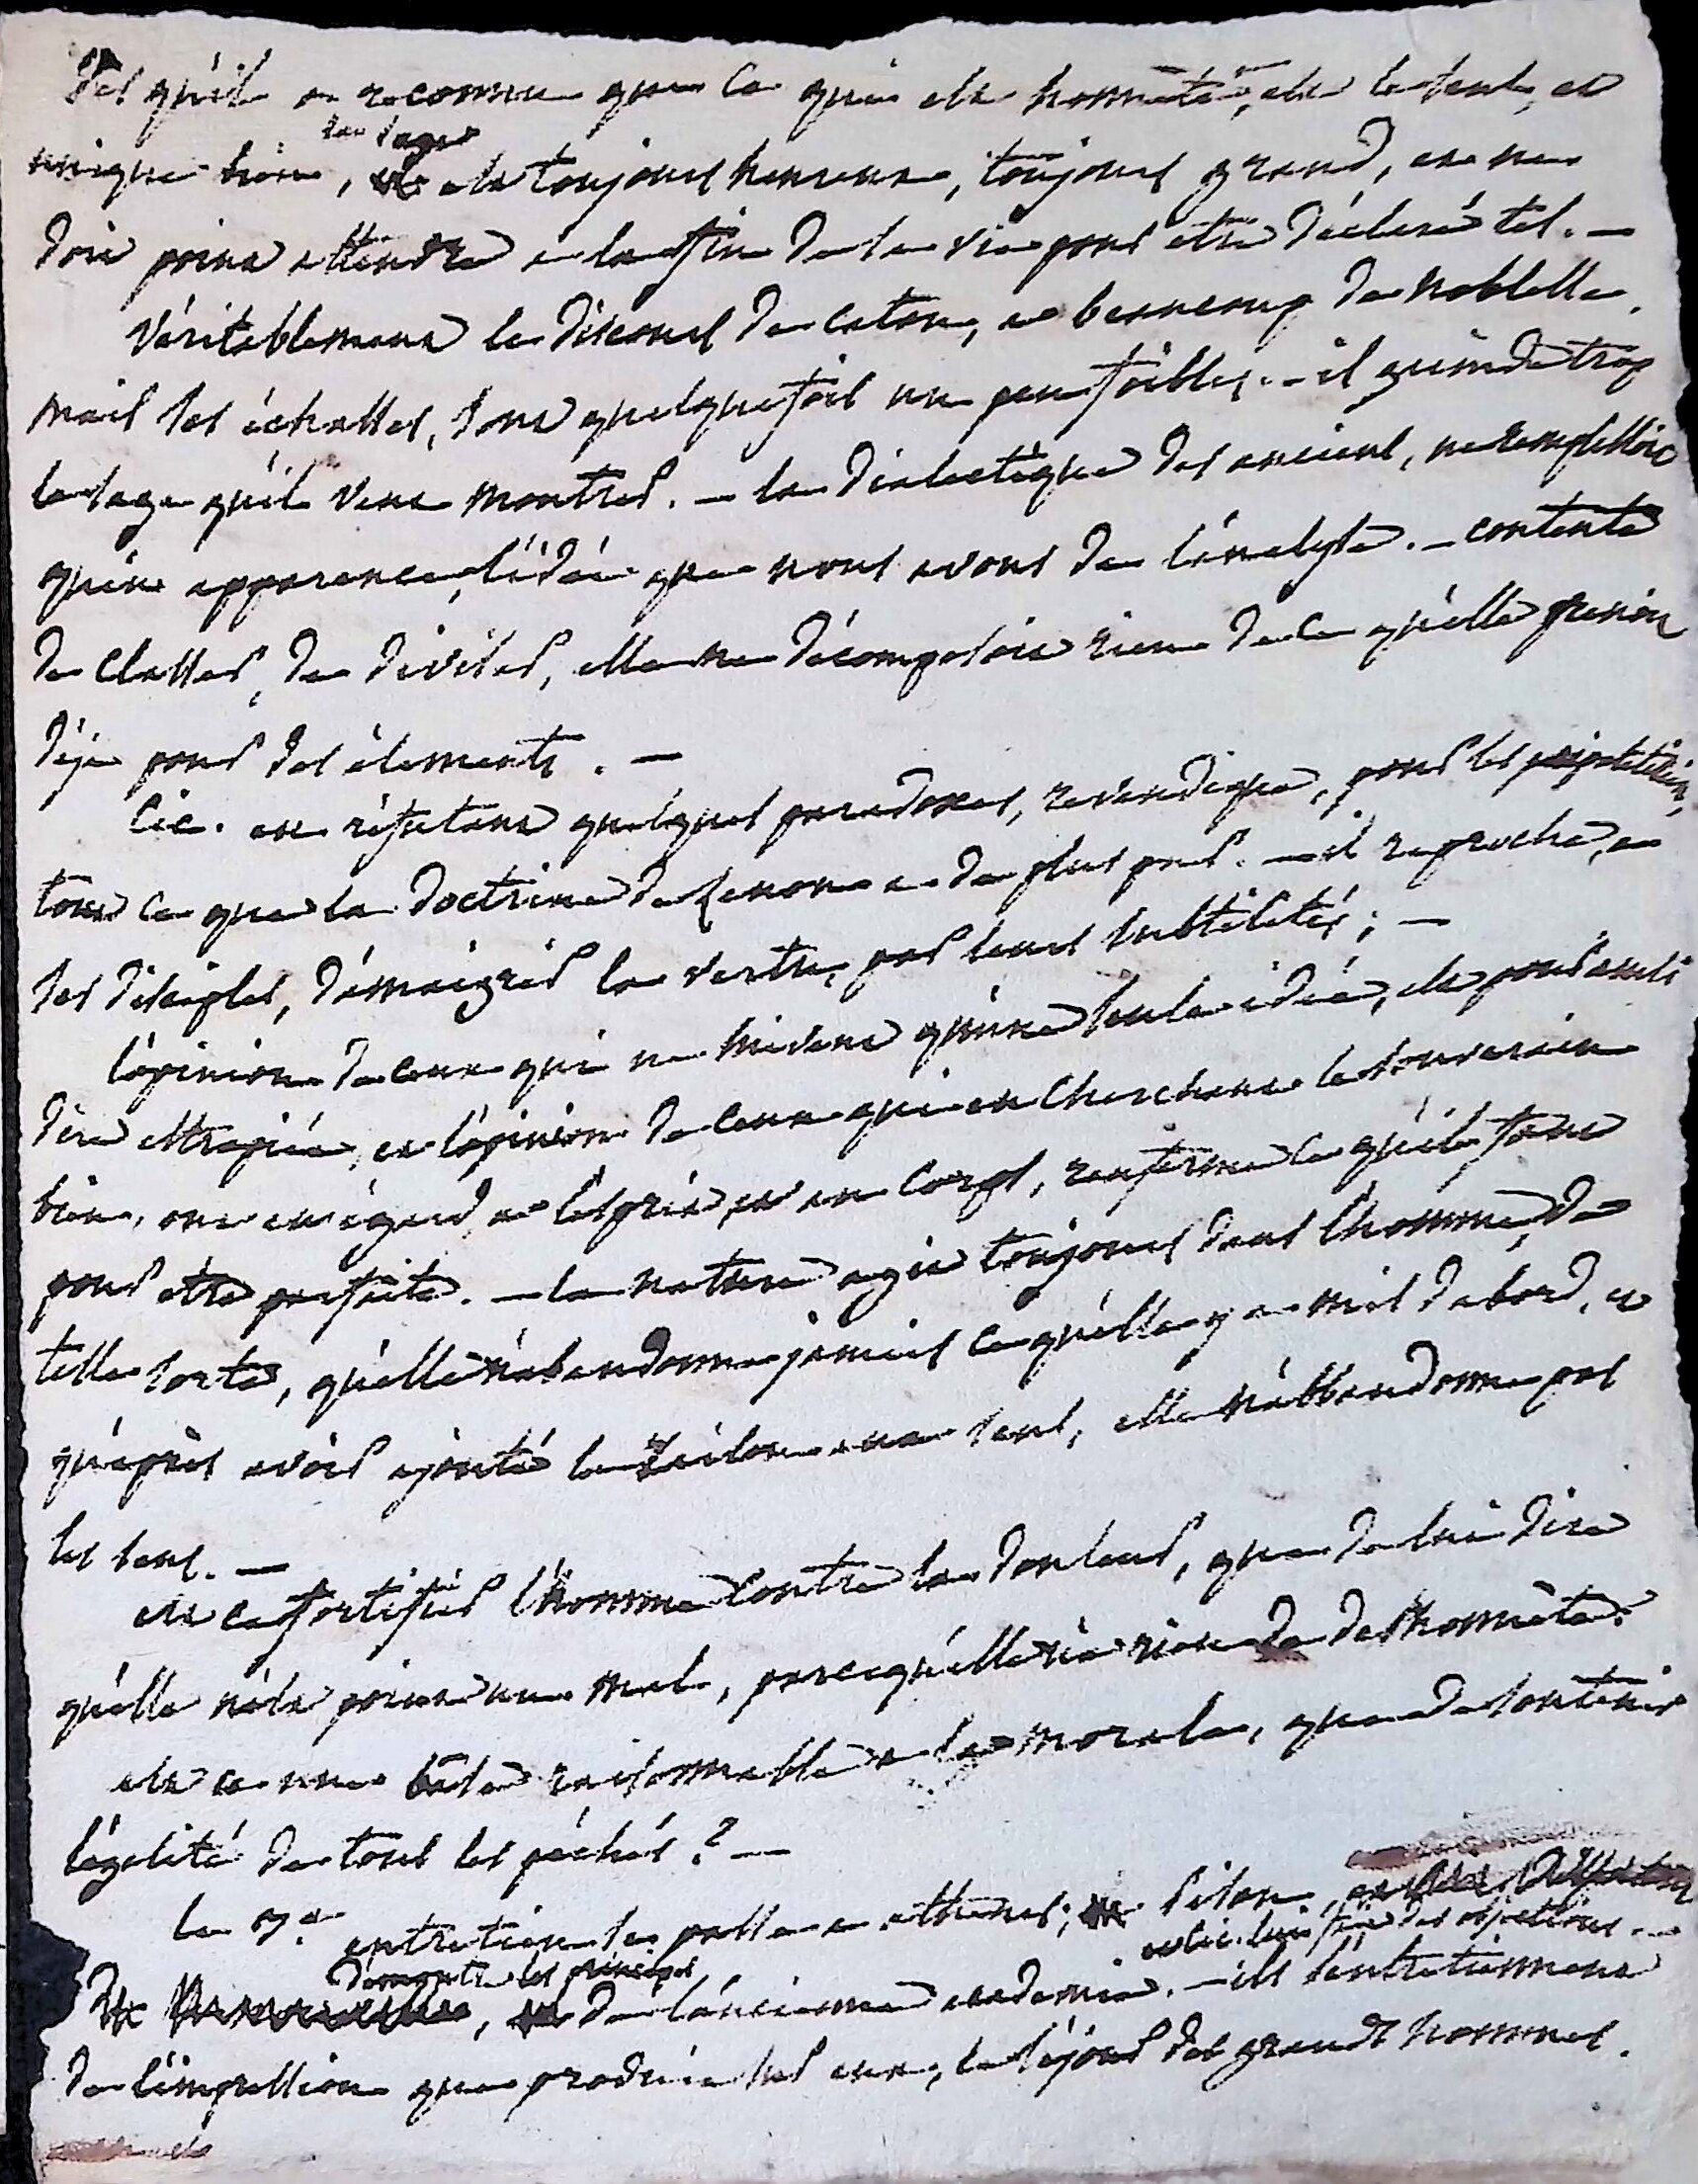 Dès qu'il a reconnu que ce qui est honnête, est le seul, et
le sage
unique bien, est toujours heureux, toujours grand, et ne
doit point attendre a la fin de sa vie pour etre déclaré tel. —
Véritablement le discours de caton, a beaucoup de noblesse.
mais ses échasses, sont quelquefois un peu foibles. — il guinde trop
le sage qu'il veut montrer. — la dialectique des anciens, ne remplissoit
qu'en apparence, l'idée que nous avons de l'analyse. — contente
de classer, de diviser, elle ne décomposoit rien de ce qu'elle prenoit
déja pour des élements. —
Cic. en réfutant quelques paradoxes, revendique, pour les péripatéticiens,
tout ce que la doctrine de Zenon a de plus pur. — il reproche, a
ses disciples, d'émaigrir la vertu, par leurs subtilités; —
l'opinion de ceux qui ne suivent qu'une seule idée, est pour ainsi
dire estropiée, et l'opinion de ceux qui en cherchant le souverain
bien, ont eu égard, a l'esprit, et au corps, renferme ce qu'il faut
pour etre parfaite. — la nature agit toujours dans l'homme, de
telle sorte, qu'elle n'abandonne jamais ce qu'elle y a mis d'abord, et
qu'après avoir ajouté la raison aux sens, elle n'abbandonne pas
les sens. —
est ce fortifier l'homme contre la douleur, que de lui dire
qu'elle n'est point un mal, parcequ'elle n'a rien de deshonnête?
est ce une base raisonnable a la morale, que de soutenir
l'égalité de tous les péchés? —
le 5e. entretien se passe a athenes; Pison,
et cic. lui fait des objections. —
démontre les principes
de l'ancienne academie. — ils s'entretiennent
de l'impression que produit sur eux, le séjour des grands hommes.